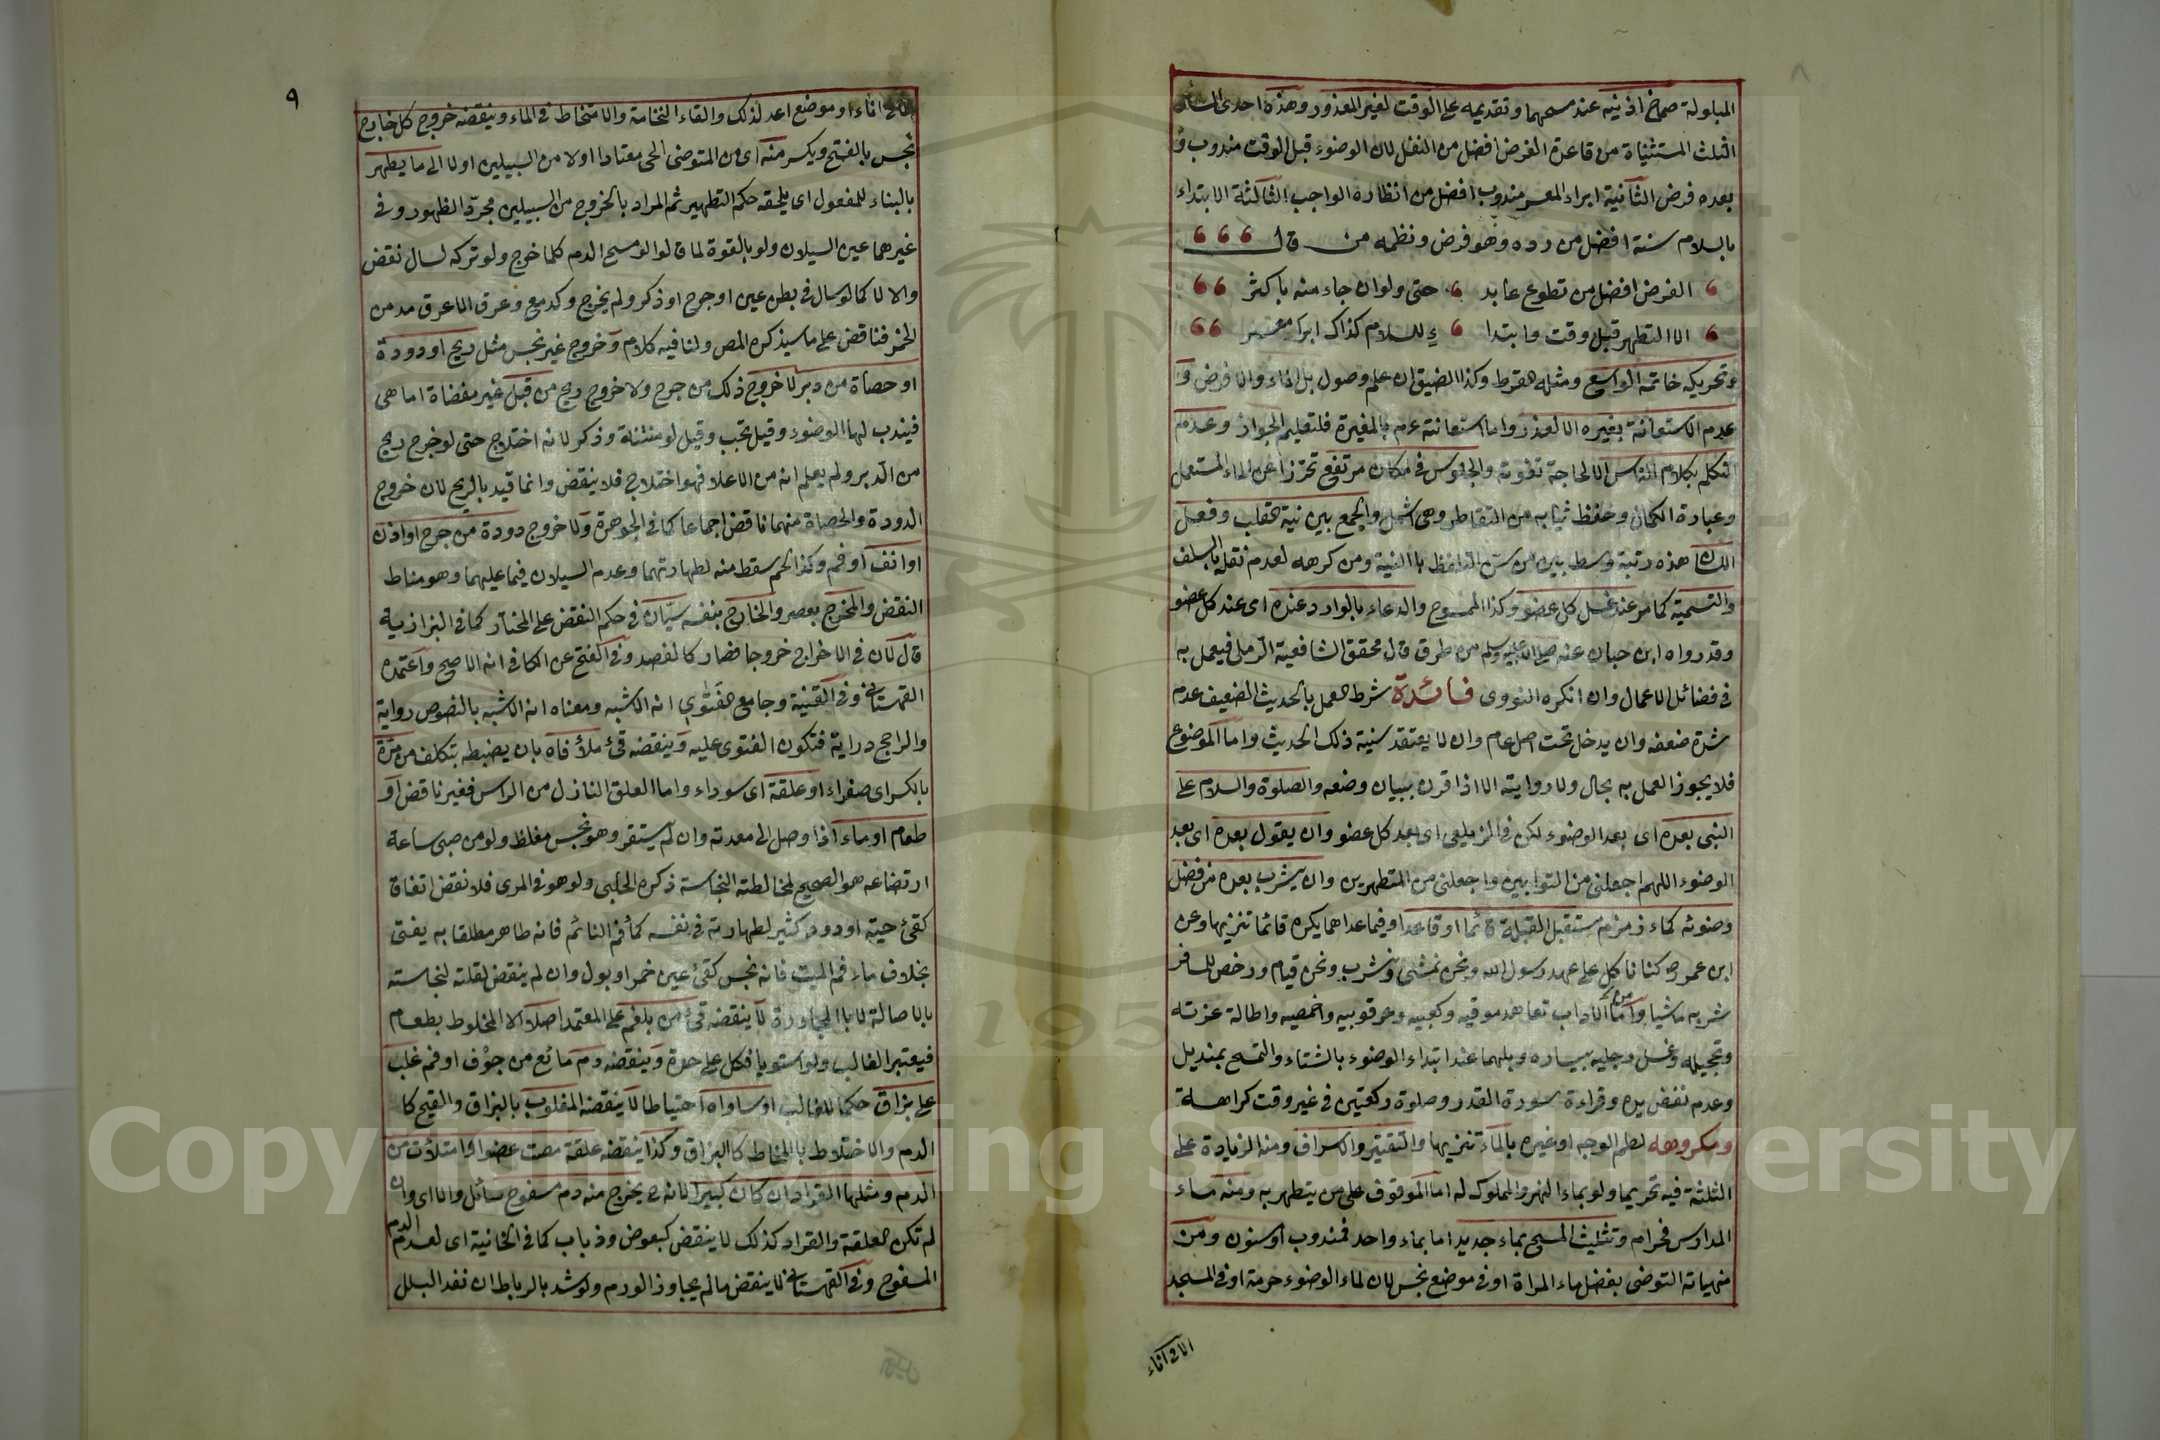 المبلولة صماخ اذنيه عند مسحهما وتقديمه على الوقت لغير المعذور وهذه احدى المسائل
الثلث المستثناة من قاعدة الفرض افضل من النفل لان الوضوء قبل الوقت مندوب و
بعده فرض الثانية ابراء المعسر مندوب افضل من انظاره الواجب الثالثة الابتداء
بالسلام سنة افضل من رده وهو فرض ونظمه من قال
الفرض افضل من تطوع عابد حتى ولو ان جاء منه باكثر
الا التطهر قبل وقت وابتدا ء للسلام كذاك ابرا معسر
وتحريك خاتمه الواسع ومثله القرط وكذا الضيق ان علم وصول بل الماء والا فرض و
عدم الاستعانة بغيره الا لعذر واما استعانته عم بالمغيرة فلتعليم الجواز وعدم
التكلم بكلام الناس الا لحاجة تفوته والجلوس في مكان مرتفع تحرزا عن الماء المستعمل
وعبارة الكمال وحفظ ثيابه من التقاطر وهي اشمل والجمع بين نية القلب وفعل
اللسان هذه رتبة وسط بين من سن التلفظ بالنية ومن كرهه لعدم نقله بالسلف
والتسمية كما مر عند غسل كل عضو وكذا الممسوح والدعاء بالوارد عنده اى عند كل عضو
وقد رواه ابن حبان عنه صلى الله عليه وسلم من طرق قال محقق الشافعية الرملى فيعمل به
في فضائل الاعمال وان انكره النووى فائدة شرط العمل بالحديث الضعيف عدم
شدة ضعفه وان يدخل تحت اصل عام وان لا يعتقد سنية ذلك الحديث واما الموضوع
فلا يجوز العمل به بحال ولا روايته الا اذا قرن ببيان وضعه والصلوة والسلام على
النبى بعده اى بعد الوضوء لكن في الزيلعى اى بعد كل عضو وان يقول بعده اى بعد
الوضوء اللهم اجعلنى من التوابين واجعلنى من المتطهرين وان يشرب بعده من فضل
وضوئه كماء زمزم مستقبل القبلة قائما او قاعدا وفيما عداهما يكره قائما تنزيها وعن
ابن عمر كنا ناكل على عهد رسول الله ونحن نمشى ونشرب ونحن قيام ورخص للمسافر
شربه ماشيا واما من الآداب تعاهد موقيه وكعبيه وعرقوبيه واخمصيه واطالة غرته
وتحجيله وغسل رجليه بيساره وبلهما عند ابتداء الوضوء بالشتاء والتمسح بمنديل
وعدم نفض يده وقراءة سورة القدر وصلوة ركعتين في غير وقت كراهة
ومكروهه لطم الوجه او غيره بالماء تنزيها والتقتير والاسراف ومنه الزيادة على
الثلثة فيه تحريما ولو بماء النهر والمملوك له اما الموقوف على من يتطهر به ومنه ماء
المدارس فحرام وتثليث المسح بماء جديد اما بماء واحد فمندوب او مسنون ومن
منهياته التوضى بفضل ماء المراة او في موضع نجس لان لماء الوضوء حرمة او في المسجد
الا في اناء
٩
الا في اناء او موضع اعد لذلك والقاء النخامة والامتخاط في الماء وينقضه خروج كل خارج
نجس بالفتح ويكسر منه اى من المتوضى الحى معتادا اولا من السبيلين اولا الى ما يطهر
بالبناء للمفعول اى يلحقه حكم التطهير ثم المراد بالخروج من السبيلين مجرد الظهور وفى
غيرهما عين السيلان ولو بالقوة لما قالوا لو مسح الدم كلما خرج ولو تركه لسال نقض
والا لا كما لو سال في بطن عين او جرح او ذكر ولم يخرج وكدمع وعرق الا عرق مدمن
الخمر فناقض على ما سيذكره المص ولنا فيه كلام وخروج غير نجس مثل ريح او دودة
او حصاة من دبر لا خروج ذلك من جرح ولا خروج ريح من قبل غير مفضاة اما هى
فيندب لها الوضوء وقيل يجب وقيل لو منتنة وذكر لانه اختلاج حتى لو خرج ريح
من الدبر ولم يعلم انه من الاعلا فهو اختلاج فلا ينقض وانما قيد بالريح لان خروج
الدودة والحصاة منهما ناقض اجماعا كما في الجوهرة ولا خروج دودة من جرح او اذن
او انف او فم وكذا لحم سقط منه لطهارتهما وعدم السيلان فيما عليهما وهو مناط
النقض والمخرج بعصر والخارج بنفسه سيان في حكم النقض على المختار كما في البزازية
قال لان في الاخراج خروجا فصار كالفصد وفي الفتح عن الكافى انه الاصح واعتمده
القهستانى وفي القنية وجامع الفتوى انه الاشبه ومعناه انه الاشبه بالنصوص رواية
والراجح دراية فتكون الفتوى عليه وينقضه قئ ملأ فاه بان يضبطه بتكلف من مرة
بالكسر اى صفراء او علقة اى سوداء واما العلق النازل من الراس فغير ناقض او
طعام او ماء اذا وصل الى معدته وان لم يستقر وهو نجس مغلظ ولو من صبى ساعة
ارتضاعه هو الصحيح لمخالطته النجاسة ذكره الحلبى ولو هو في المرى فلا نقض اتفاقا
كقئ حية او دود كثير لطهارته في نفسه كماء فم النائم فانه طاهر مطلقا به يفتى
بخلاف ماء فم الميت فانه نجس كقئ عين خمر او بول وان لم ينقض لقلته لنجاسته
بالاصالة لا بالمجاورة لا ينقضه قئ من بلغم على المعتمد اصلا الا المخلوط بطعام
فيعتبر الغالب ولو استويا فكل على حدة وينقضه دم مائع من جوف او فم غلب
على بزاق حكما للغالب او ساواه احتياطا لا ينقضه المغلوب بالبزاق والقيح كا
الدم والاختلاط بالمخاط كالبزاق وكذا ينقضه علقة مصت عضوا وامتلأت من
الدم ومثلها القراد ان كان كبيرا لانه ح يخرج منه دم مسفوح سائل والا اى وان
لم تكن العلقة والقراد كذلك لا ينقض كبعوض وذباب كما في الخانية اى لعدم الدم
المسفوح وفي القهستانى لا ينقض ما لم يجاوز الورم ولو شد بالرباط ان نفد البلل
Copyright © King Saud University
195